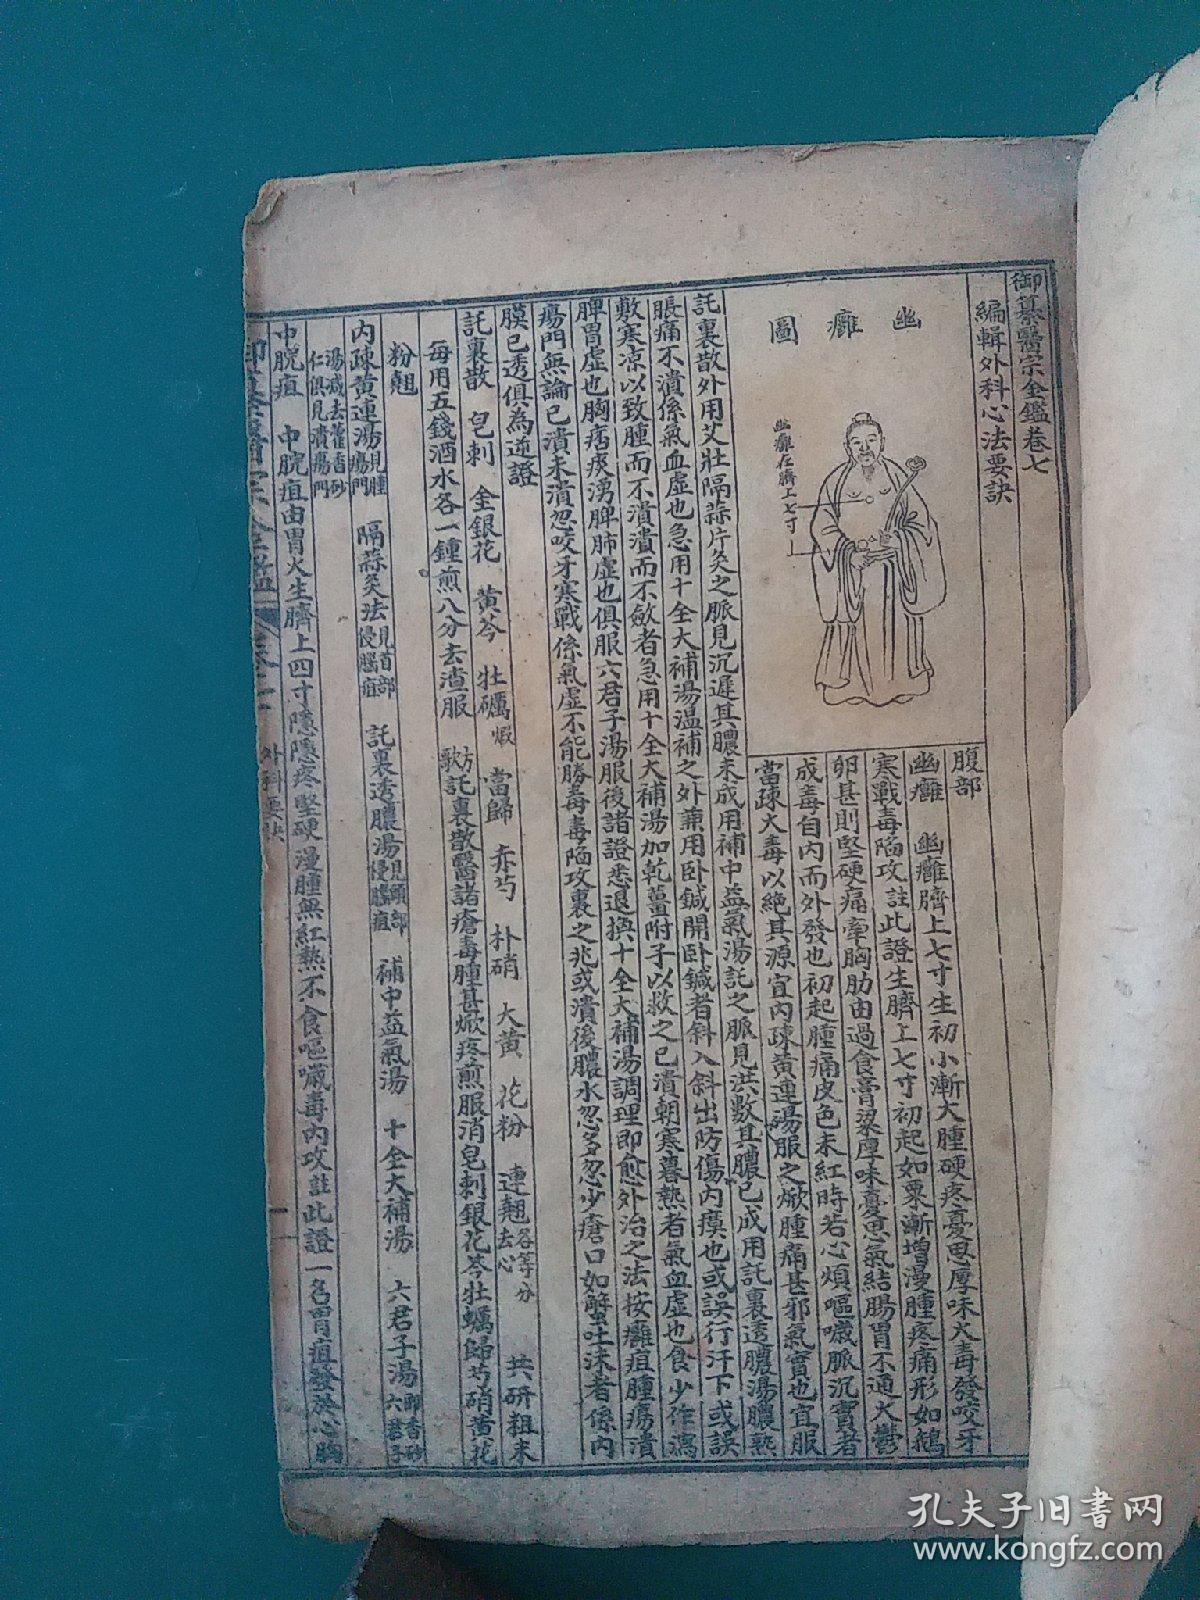 御纂醫宗金鑑卷七
編輯外科心法要訣
幽癰圖
幽癰在臍上七寸
腹部
幽癰　幽癰臍上七寸生初小漸大腫硬疼憂思厚味火毒發咬牙
寒戰毒陷攻註此證生臍上七寸初起如粟漸增漫腫疼痛形如鵝
卵甚則堅硬痛牽胸肋由過食膏粱厚味憂思氣結腸胃不通火鬱
成毒自內而外發也初起腫痛皮色未紅時若心煩嘔噦脈沉實者
當疎火毒以絕其源宜內疎黃連湯服之焮腫痛甚邪氣實也宜服
託裏散外用艾壯隔蒜片灸之脈見沉遲其膿未成用補中益氣湯託之脈見洪數其膿已成用託裏透膿湯膿熟
脹痛不潰係氣血虛也急用十全大補湯溫補之外兼用臥鍼開臥鍼者斜入斜出防傷內瘼也或誤行汗下或誤
敷寒凉以致腫而不潰潰而不斂者急用十全大補湯加乾薑附子以救之已潰朝寒暮熱者氣血虛也食少作瀉
脾胃虛也胸痞痰湧脾肺虛也俱服六君子湯服後諸證悉退換十全大補湯調理即愈外治之法按癰疽腫瘍潰
瘍門無論已潰未潰忽咬牙寒戰係氣虛不能勝毒毒陷攻裏之兆或潰後膿水忽多忽少瘡口如蟹吐沫者係內
膜已透俱為逆證
託裏散　皂刺　金銀花　黃芩　牡礪煆　當歸　赤芍　朴硝　大黃　花粉　連翹去心各等分　共研粗末
每用五錢酒水各一鍾煎八分去渣服　方歌託裏散醫諸瘡毒腫甚焮疼煎服消皂刺銀花芩牡蠣歸芍硝黃花
粉翹
內疎黃連湯見腫瘍門　隔蒜灸法見首部侵腦疽　託裏透膿湯見頭部侵腦疽　補中益氣湯　十全大補湯　六君子湯即香砂六君子
湯減去藿香砂仁俱見潰瘍門
中脘疽　中脘疽由胃火生臍上四寸隱隱疼堅硬漫腫無紅熱不食嘔噦毒內攻註此證一名胃疽發於心胸
御纂醫宗金鑑　卷七　外科要訣　一
孔夫子旧书网
www.kongfz.com